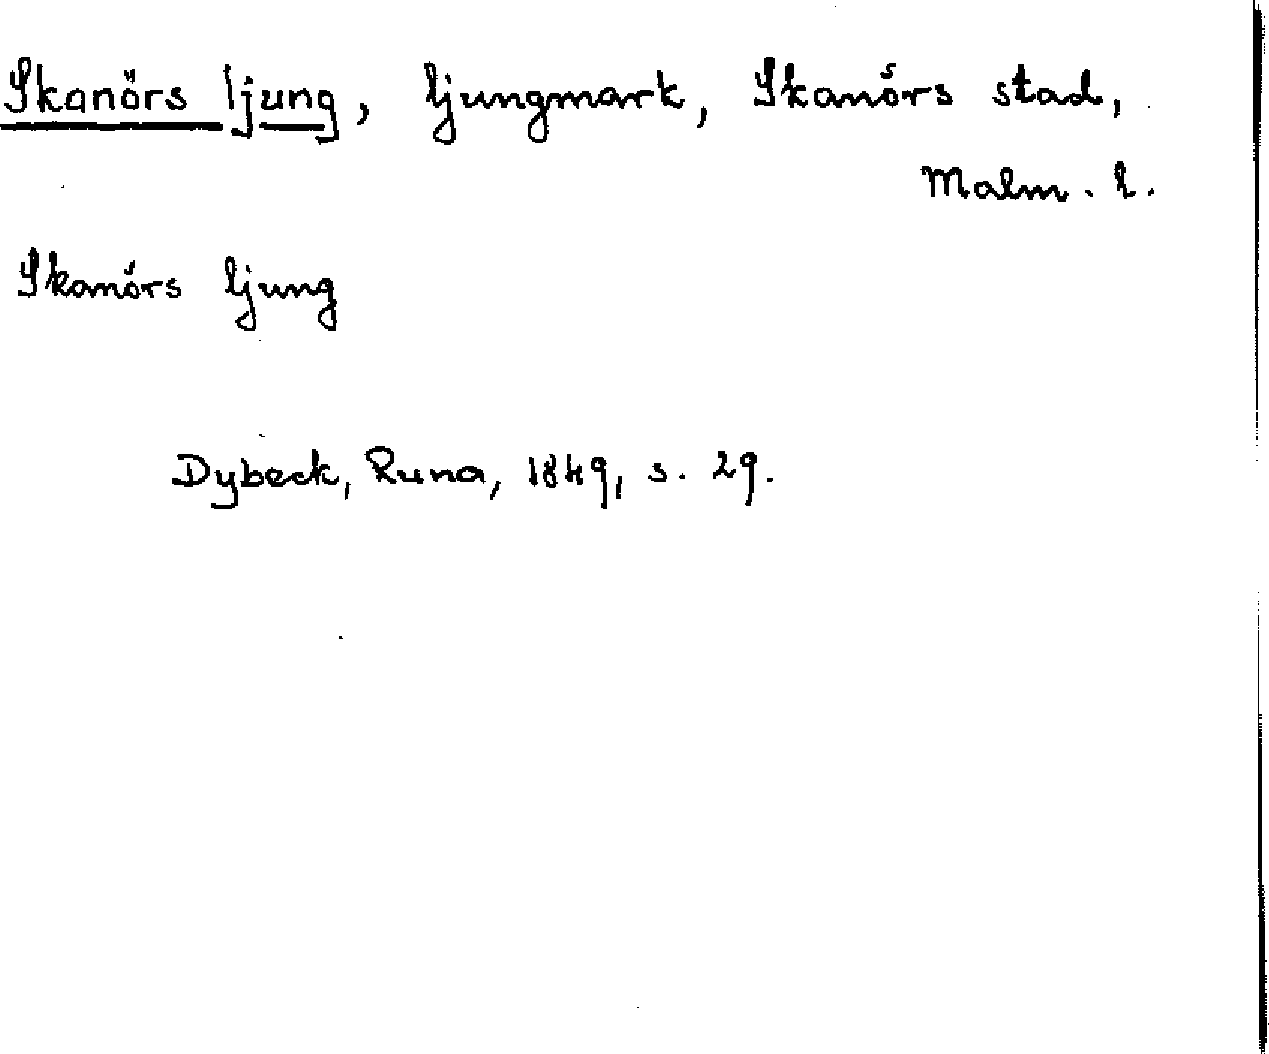 Skanörs ljung, ljungmark, Skanörs stad,
Malm. l.
Skanörs ljung
Dybeck, Runa, 1849, s. 29.